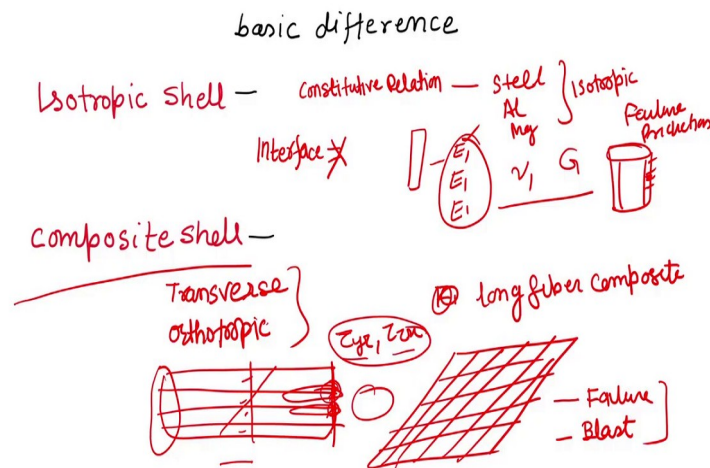 basic difference
Isotropic Shell - Constitutive Relation - Steel
Al
Mg
Isotropic
Failure
Prediction
Interface
E₁
E₁
E₁
ν₁ G
Composite shell -
Transverse
Orthotropic
long fiber composite
- Failure
- Blast